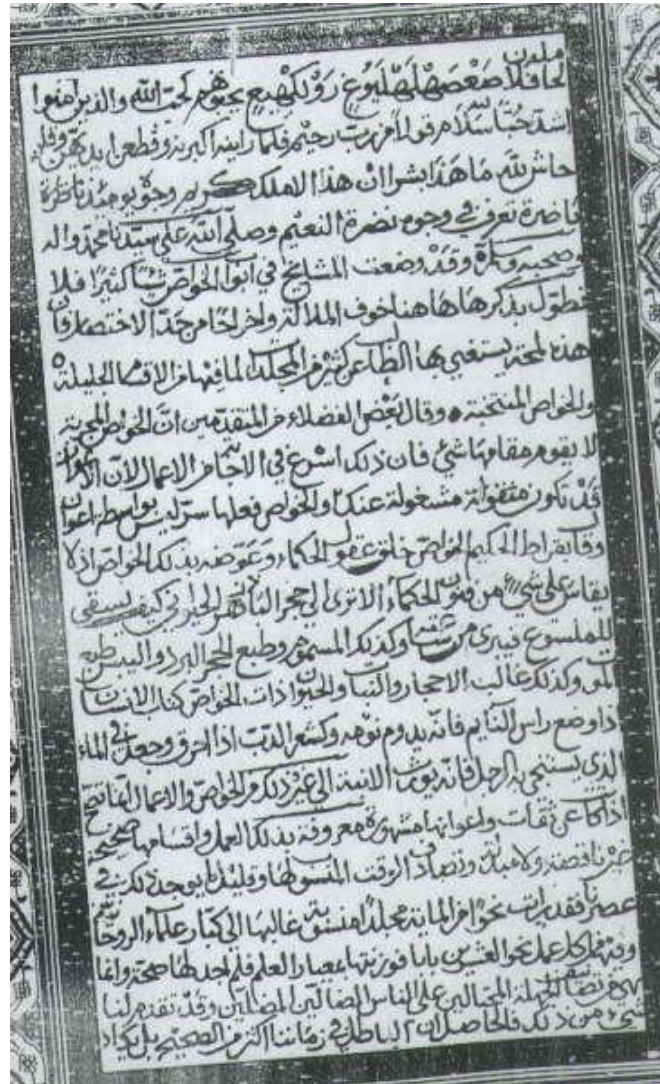 لحا فلا صعصهلهليوع يحبونهم كحب الله والذين امنوا
اشد حبا سلام قولا من رب رحيم فلما راينه اكبرنه وقطعن ايديهن وقلن
حاش لله ما هذا بشرا ان هذا الا ملك كريم وجوه يومئذ ناظرة
ناضرة تعرف في وجوه نضرة النعيم وصلى الله على سيدنا محمد واله
وصحبه وسلم وقد وضعت المشايخ في ابواب الخواص شيئا كثيرا فلا
نطول بذكرها هاهنا خوف الملالة واخراجا من حد الاختصار فان
هذه لمحة يستغني بها الطالب عن كثير من المجلدات لما فيها من الاقسام الجليلة
والخواص المنتخبة وقال بعض الفضلاء من المتقدمين ان الخواص المجربة
لا يقوم مقامها شئ فان ذلك اسرع في الاجابة من الاعمال لان الاعوان
قد تكون مشغولة عنك والخواص فعلها سر ليس بواسطة اعوان
وقال بقراط الحكيم الخواص خلق عقول الحكماء بذلك الخواص اذ لا
يقاس على شئ من فنون الحكماء الا ترى الى حجر البادزهر الحيواني كيف يسقى
للملسوع فيبرى من وكذلك المسموم وطبع الحجر البرد واليبس طبع
الموت وكذلك غالب الاحجار والنبات والحيوان ذات الخواص كناب الانسان
اذا وضع راس النايم فانه يدوم نومه وكشعر الدب اذا احرق وجعل في الماء
الذي يستنجي به الرجل فانه يورث الى غير ذلك من الخواص والاعمال
اذا كان عن ثقات واعوانها مشهورة معروفة بذلك العمل واقسامها صحيحة
غير ناقصة ولا مبدلة وتصادف الوقت المنسوب لها وقليل ما يوجد ذلك في
عصرنا فقد رايت نحوا من الماية مجلدا منسوبة غالبها الى كبار علماء الروحانية
وفيه من كل عمل نحو العشرين بابا فوزنتها بمعيار العلم فلم اجد لها صحة وانما
هي من تصانيف الجهلة المحتالين على الناس الضالين المضلين وقد تقدم لنا
شئ من ذلك فالحاصل ان الباطل في زماننا اكثر من الصحيح بل يكاد